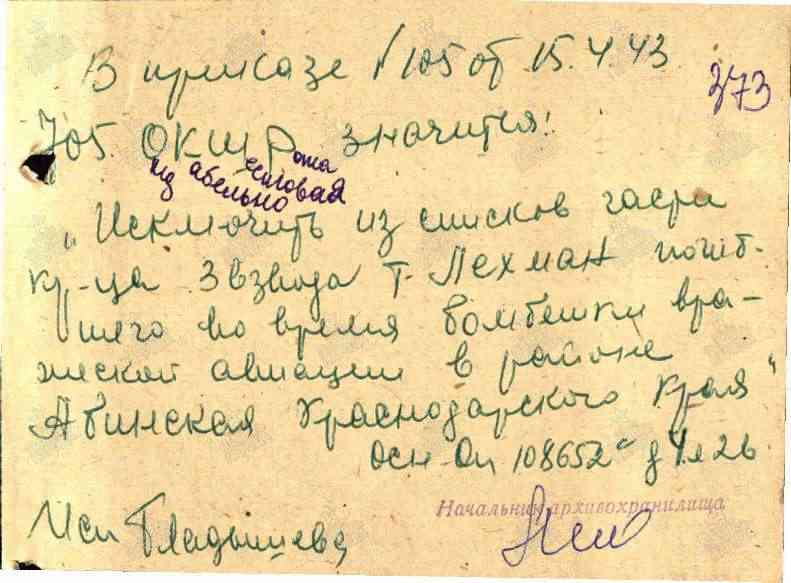 В приказе №105 от 15.4.43
373
705 ОКШР значится:
кабельно шестовая рота
"Исключить из списков части
кр-ца 3 взвода т. Лехман погиб-
шего во время бомбежки вра-
жеской авиации в районе
Абинская Краснодарского края"
осн. Оп 108652с д 4 л 26
Начальник архивохранилища
Исп Гладышева